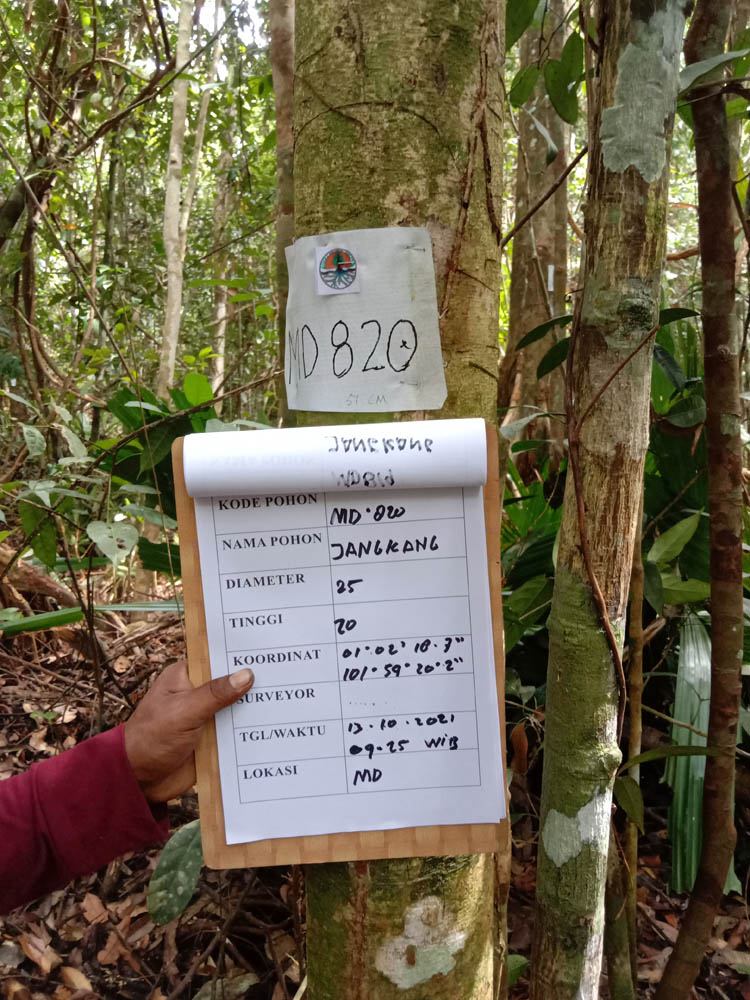 MD 820
57 CM
JANGKANG
KODE POHON MD·820
NAMA POHON JANGKANG
DIAMETER 25
TINGGI 20
KOORDINAT 01°·02' 18·3"
101·59°20·2"
SURVEYOR
TGL/WAKTU 13·10·2021
09·25 WIB
LOKASI MD